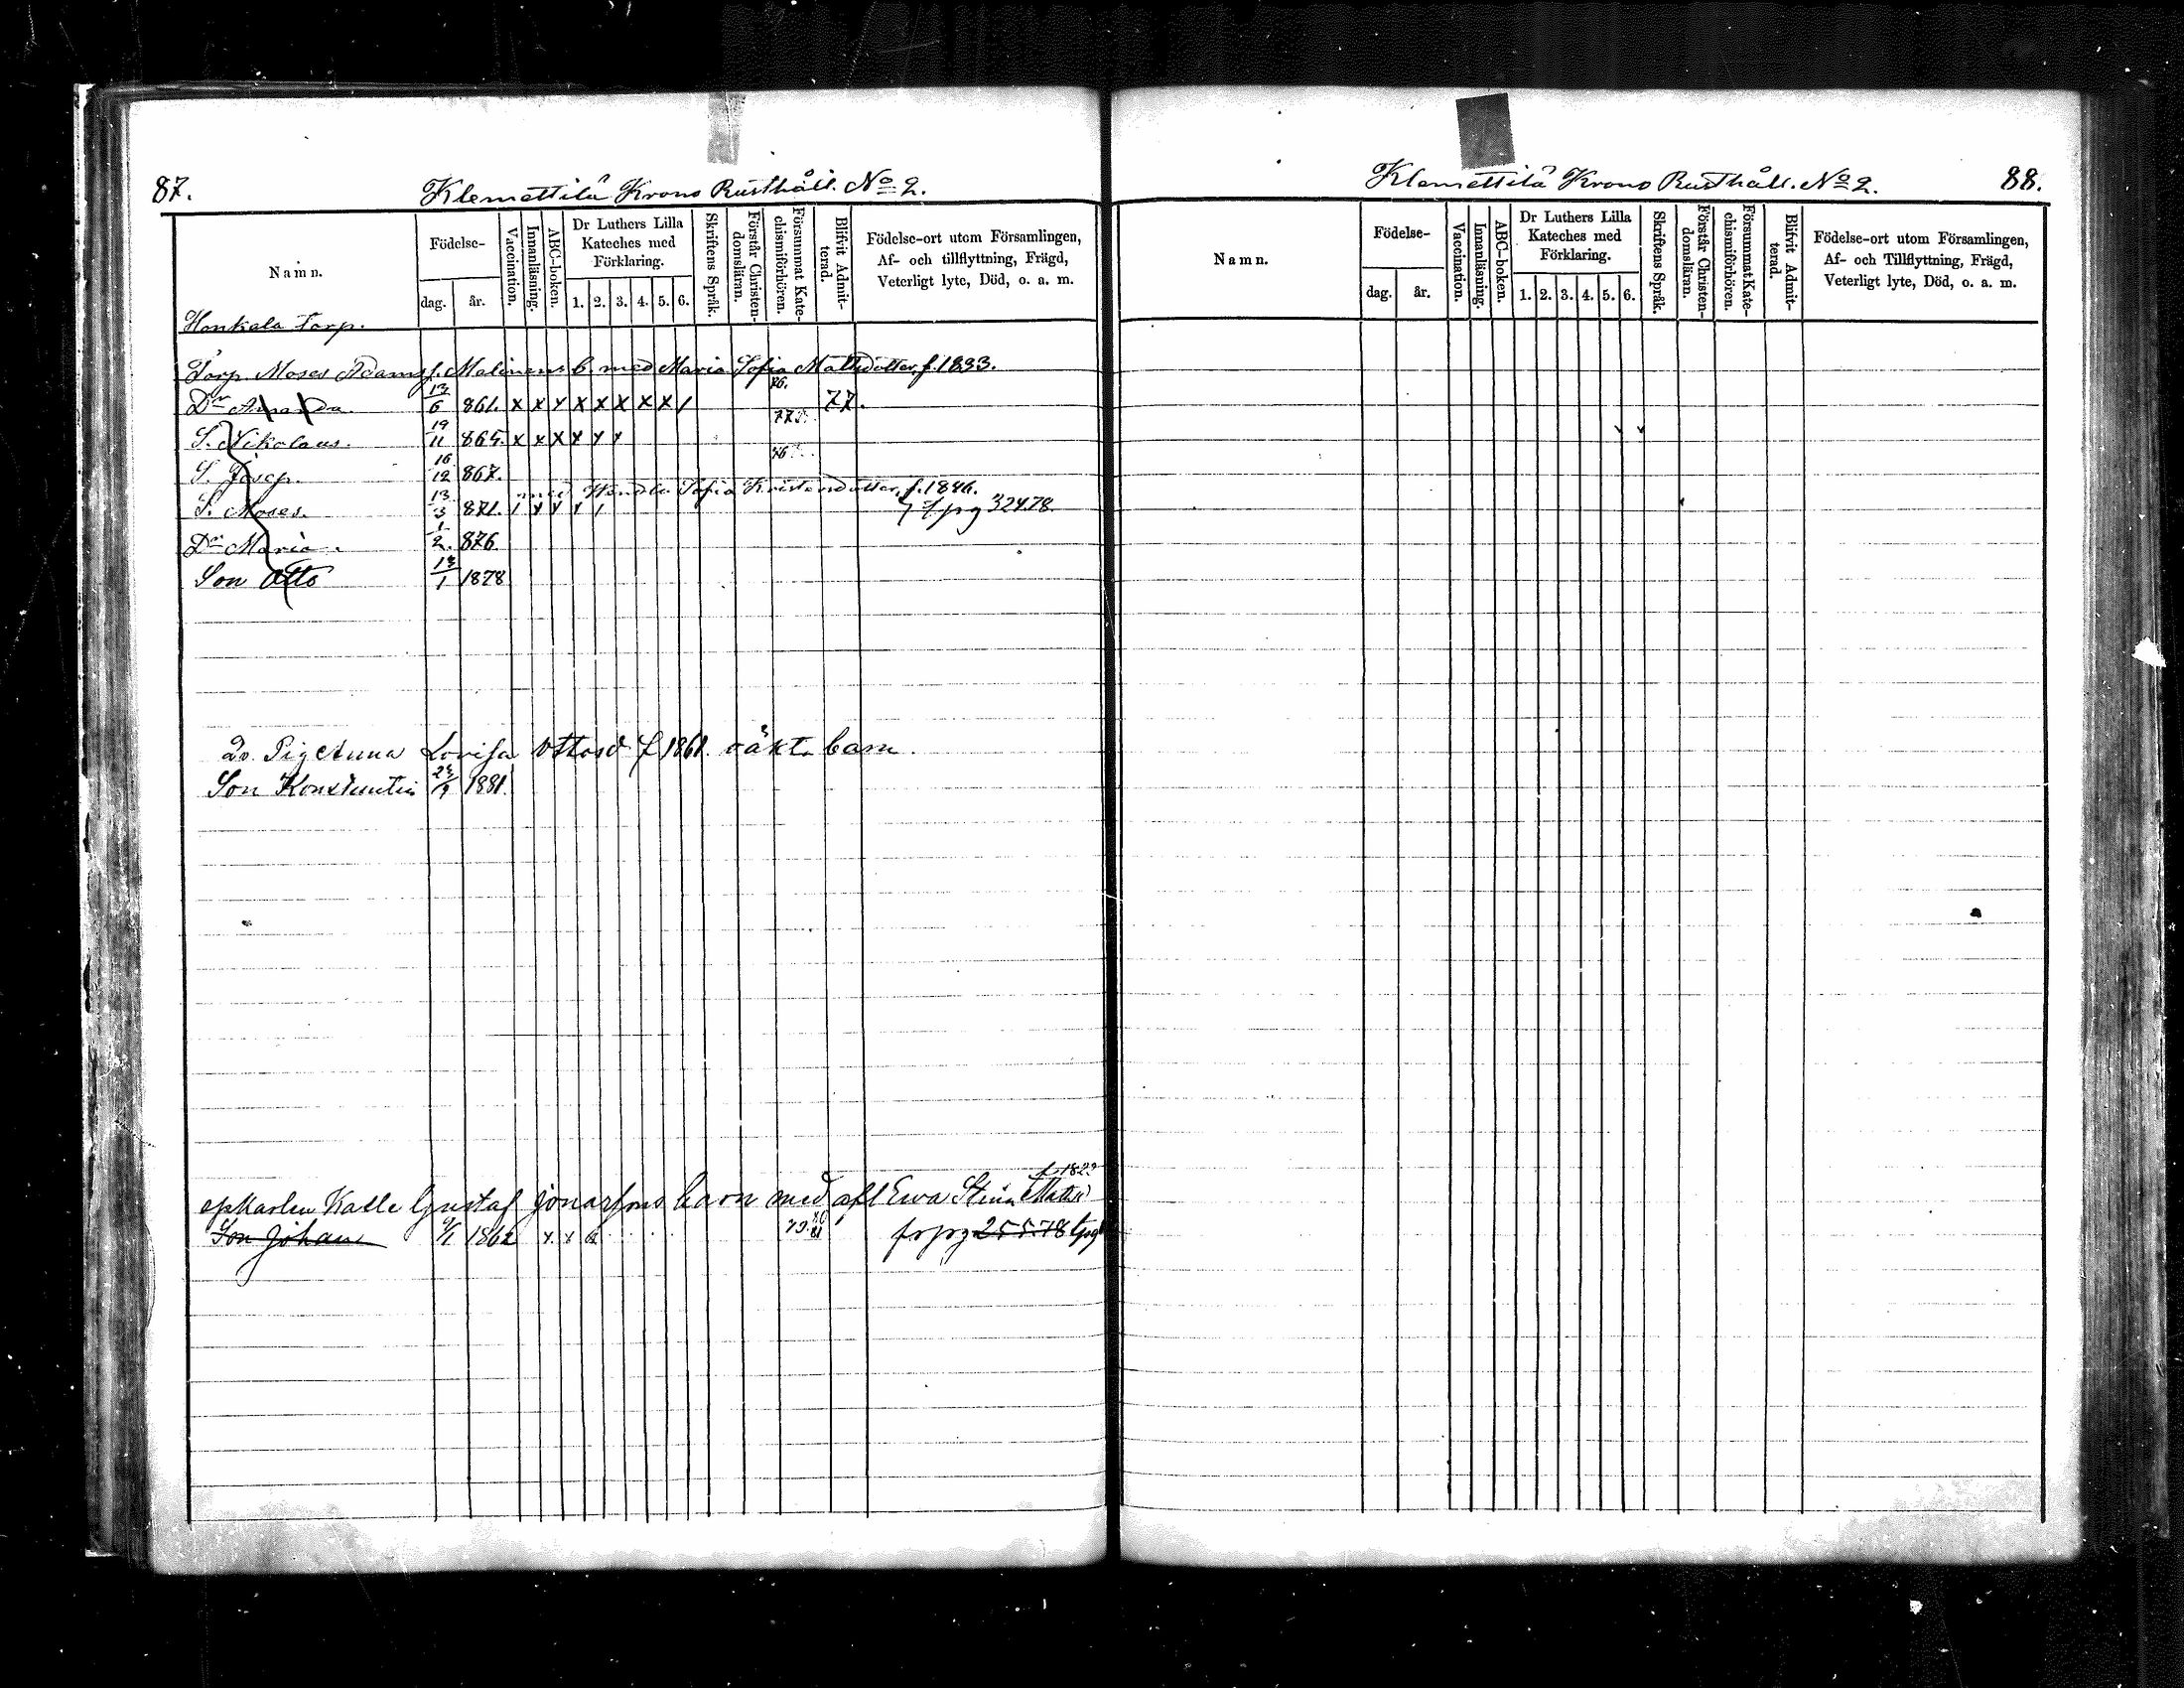 87.
Klemettilä Krono Rusthåll. No 2.
Namn.
Födelse-
dag.
år.
Vaccination.
Innanläsning.
ABC-boken.
Dr Luthers Lilla
Kateches med
Förklaring.
1. 2. 3. 4. 5. 6.
Skriftens Språk.
Förstår Christen-
domsläran.
Försummat Kate-
chismiförhören.
Blifvit Admit-
terad.
Födelse-ort utom Församlingen,
Af- och tillflyttning, Frägd,
Veterligt lyte, Död, o. a. m.
Honkala Torp.
Torp. Moses Adamsf. Malinens b. med Maria Sofia Mattsdotter, f. 1833.
Dr Amanda. 13/6 861. x x x x x x x x / 76. 77.
S. Nikolaus. 19/11 865. x x x x x x 77
S. Josep. 16/12 867. 76
med Wendla Sofia Kristersdotter, f. 1846.
S. Moses. 13/3 871. / x x x / 324.78.
Dr Maria. 1/2. 876.
Son Otto 13/1 1878
Pig Anna Lovisa Ottosd f 1861. oäkta barn.
Son Konstantin 23/9 1881.
f. 1823
Karlen Kalle Gustaf Jonassons barn med afl Ewa Stina Mattsd
Son Johan 9/1 1862 x x 79. 81 255.78
Klemettilä Krono Rusthåll. No 2.
88.
Namn.
Födelse-
dag.
år.
Vaccination.
Innanläsning.
ABC-boken.
Dr Luthers Lilla
Kateches med
Förklaring.
1. 2. 3. 4. 5. 6.
Skriftens Språk.
Förstår Christen-
domsläran.
Försummat Kate-
chismiförhören.
Blifvit Admit-
terad.
Födelse-ort utom Församlingen,
Af- och Tillflyttning, Frägd,
Veterligt lyte, Död, o. a. m.